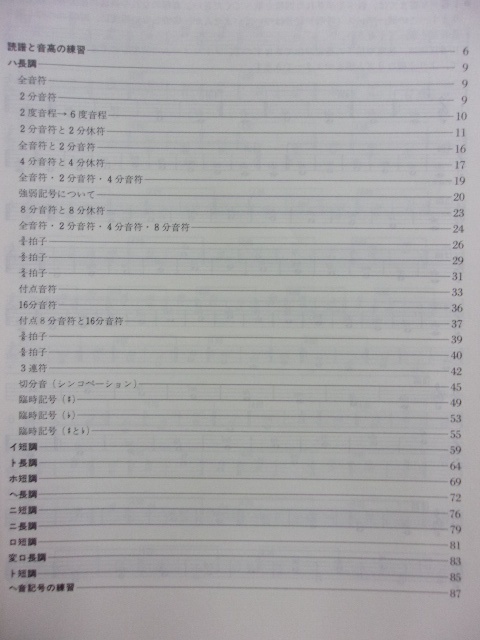 読譜と音高の練習 6
ハ長調 9
全音符 9
2分音符 9
2度音程→6度音程 10
2分音符と2分休符 11
全音符と2分音符 16
4分音符と4分休符 17
全音符・2分音符・4分音符 19
強弱記号について 20
8分音符と8分休符 23
全音符・2分音符・4分音符・8分音符 24
拍子 26
拍子 29
拍子 31
付点音符 33
16分音符 36
付点8分音符と16分音符 37
拍子 39
拍子 40
3連符 42
切分音(シンコペーション) 45
臨時記号(♯) 49
臨時記号(♭) 53
臨時記号(♯と♭) 55
イ短調 59
ト長調 64
ホ短調 69
ヘ長調 72
ニ短調 76
ニ長調 79
ロ短調 81
変ロ長調 83
ト短調 85
ヘ音記号の練習 87